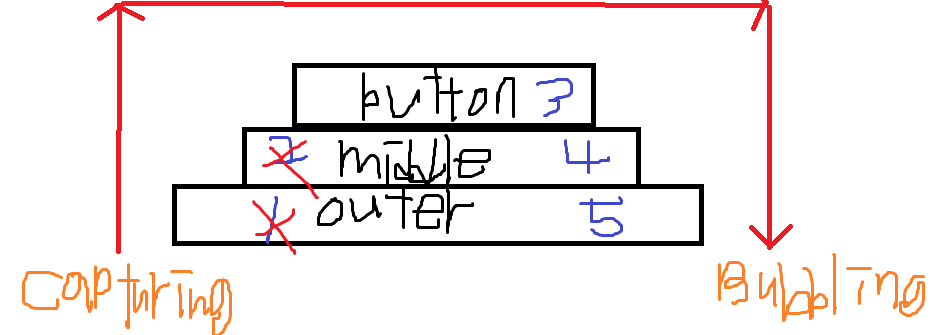 button 3
2 middle 4
1 outer 5
Capturing
Bubbling